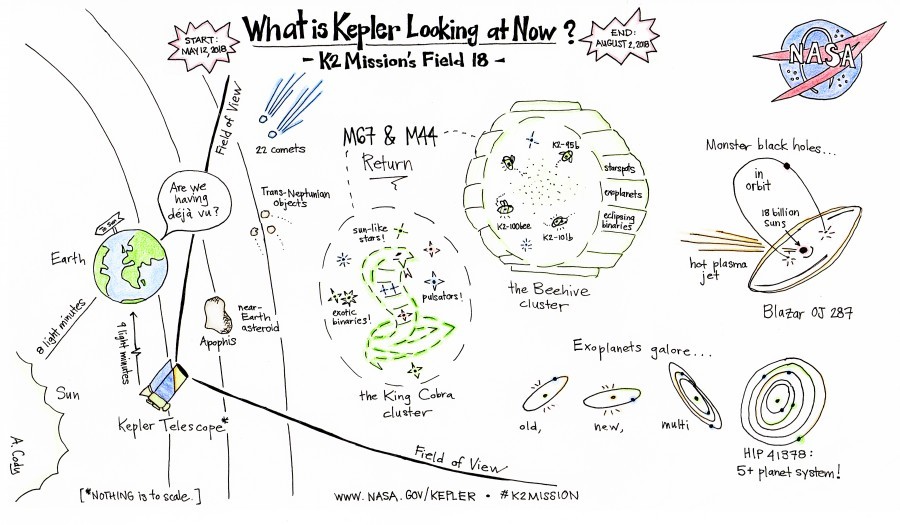 What is Kepler Looking at Now?
- K2 Mission's Field 18 -
START:
MAY 12, 2018
END:
AUGUST 2, 2018
NASA
Field of View
22 comets
Are we
having
déjà vu?
Trans-Neptunian
objects
Earth
8 light minutes
9 light minutes
near-
Earth
asteroid
Apophis
Sun
Kepler Telescope*
A. Cody
[*NOTHING is to scale.]
M67 & M44
Return
sun-like
stars!
pulsators!
exotic
binaries!
the King Cobra
cluster
K2-95b
K2-100bee
K2-101b
starspots
exoplanets
eclipsing
binaries
the Beehive
cluster
Monster black holes...
in
orbit
18 billion
suns
hot plasma
jet
Blazar OJ 287
Exoplanets galore...
old,
new,
multi
HIP 41378:
5+ planet system!
Field of View
WWW.NASA.GOV/KEPLER • #K2MISSION